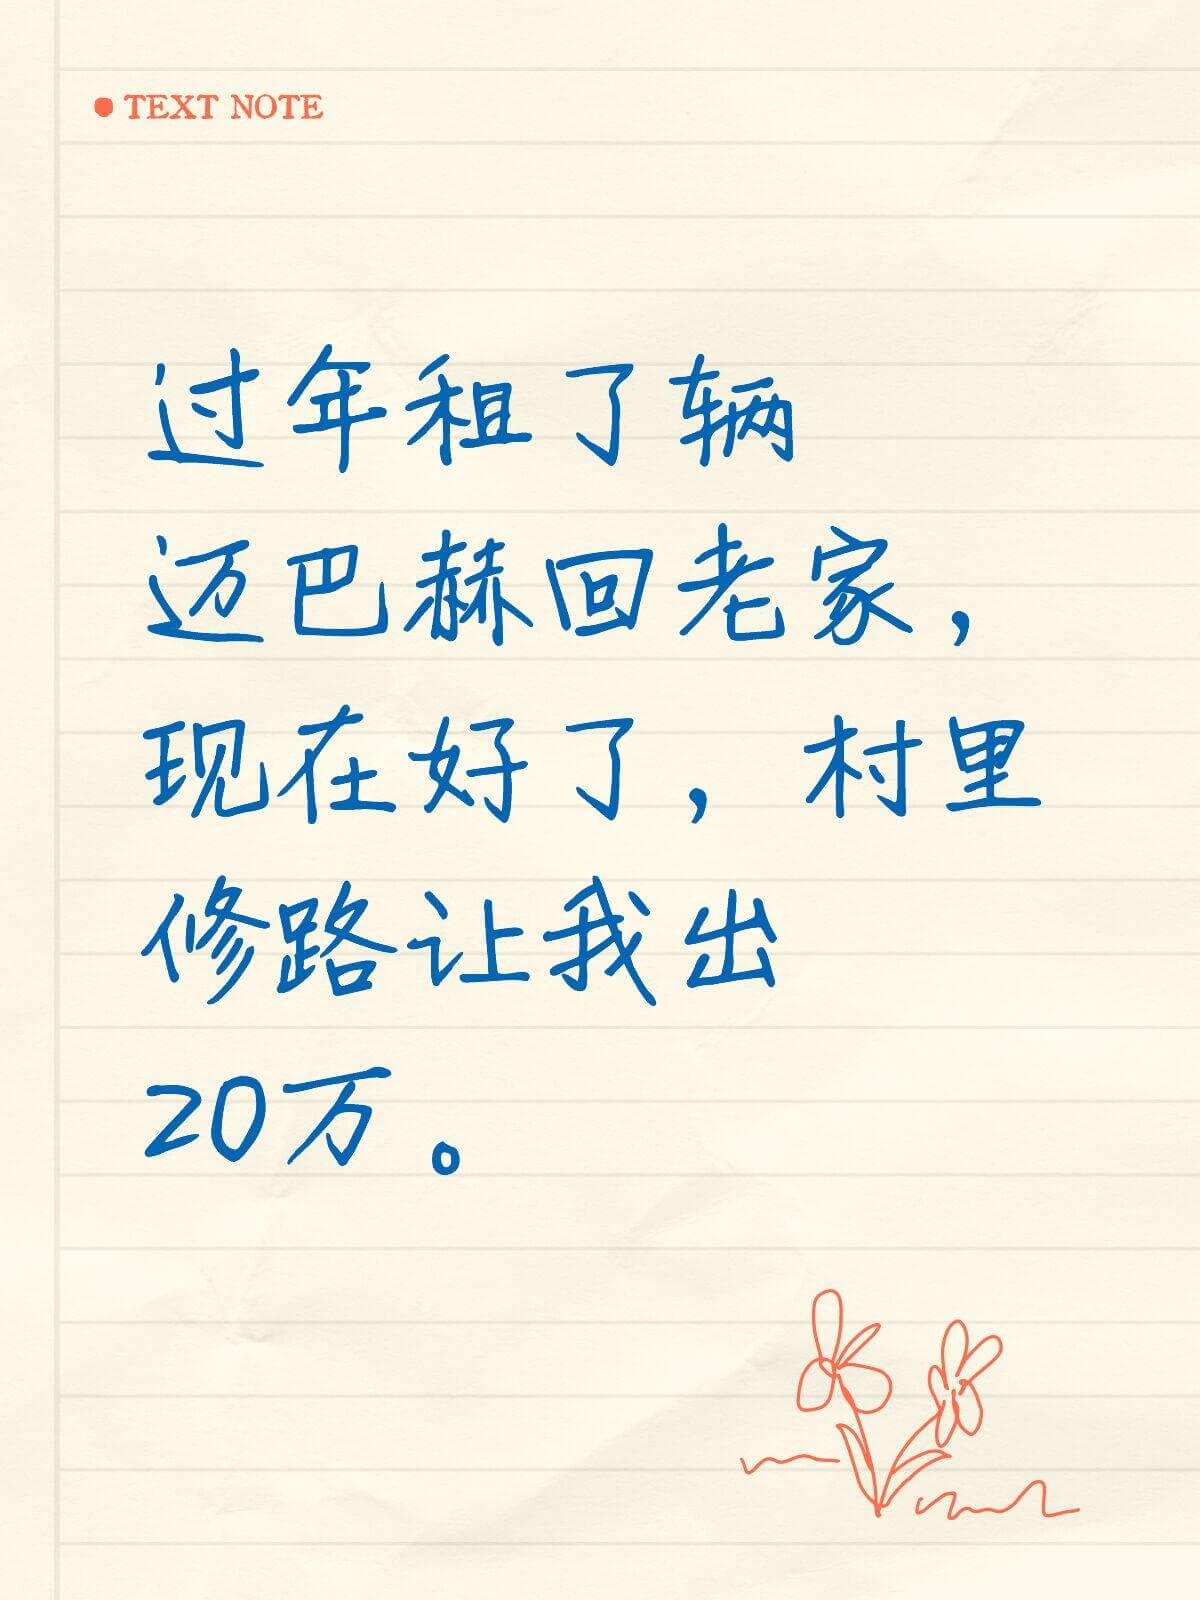 TEXT NOTE
过年租了辆
迈巴赫回老家，
现在好了，村里
修路让我出
20万。